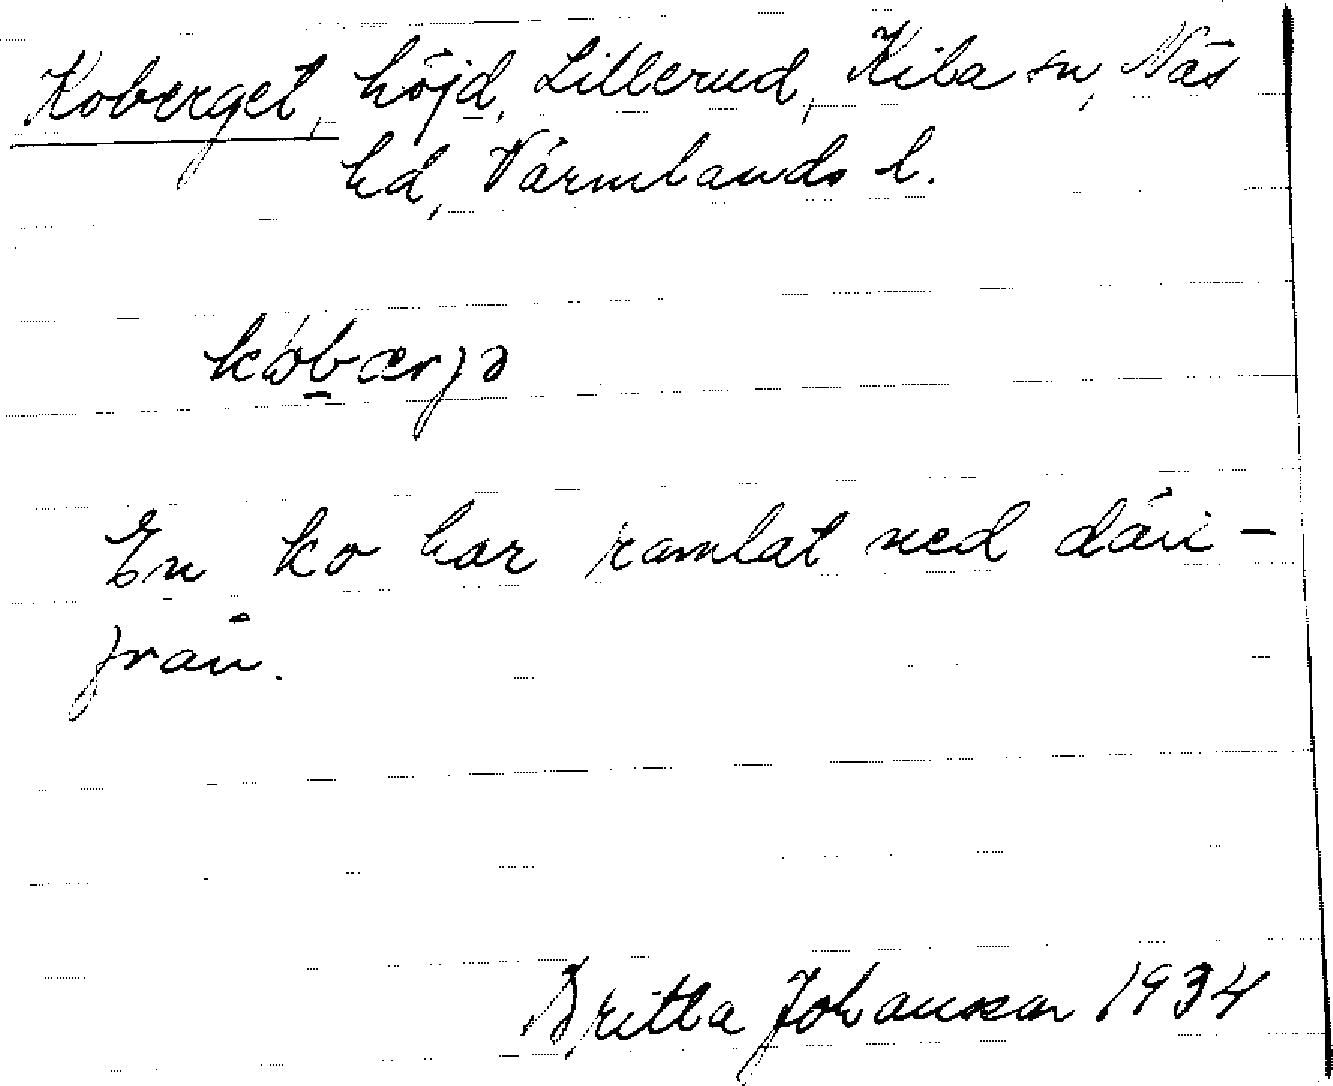 Koberget, höjd, Lillerud, Kila sn, Näs
hd, Värmlands l.
kóbærjə
En ko har ramlat ned däri-
från.
Britta Johansson 1934